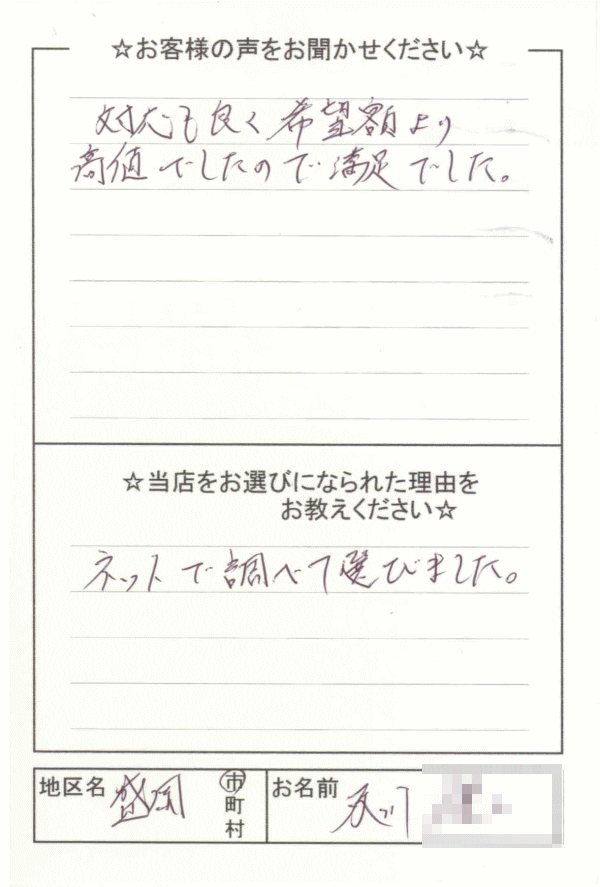 ☆お客様の声をお聞かせください☆
対応も良く希望額より
高値でしたので満足でした。
☆当店をお選びになられた理由を
お教えください☆
ネットで調べて選びました。
地区名 盛岡 市町村 お名前 及川